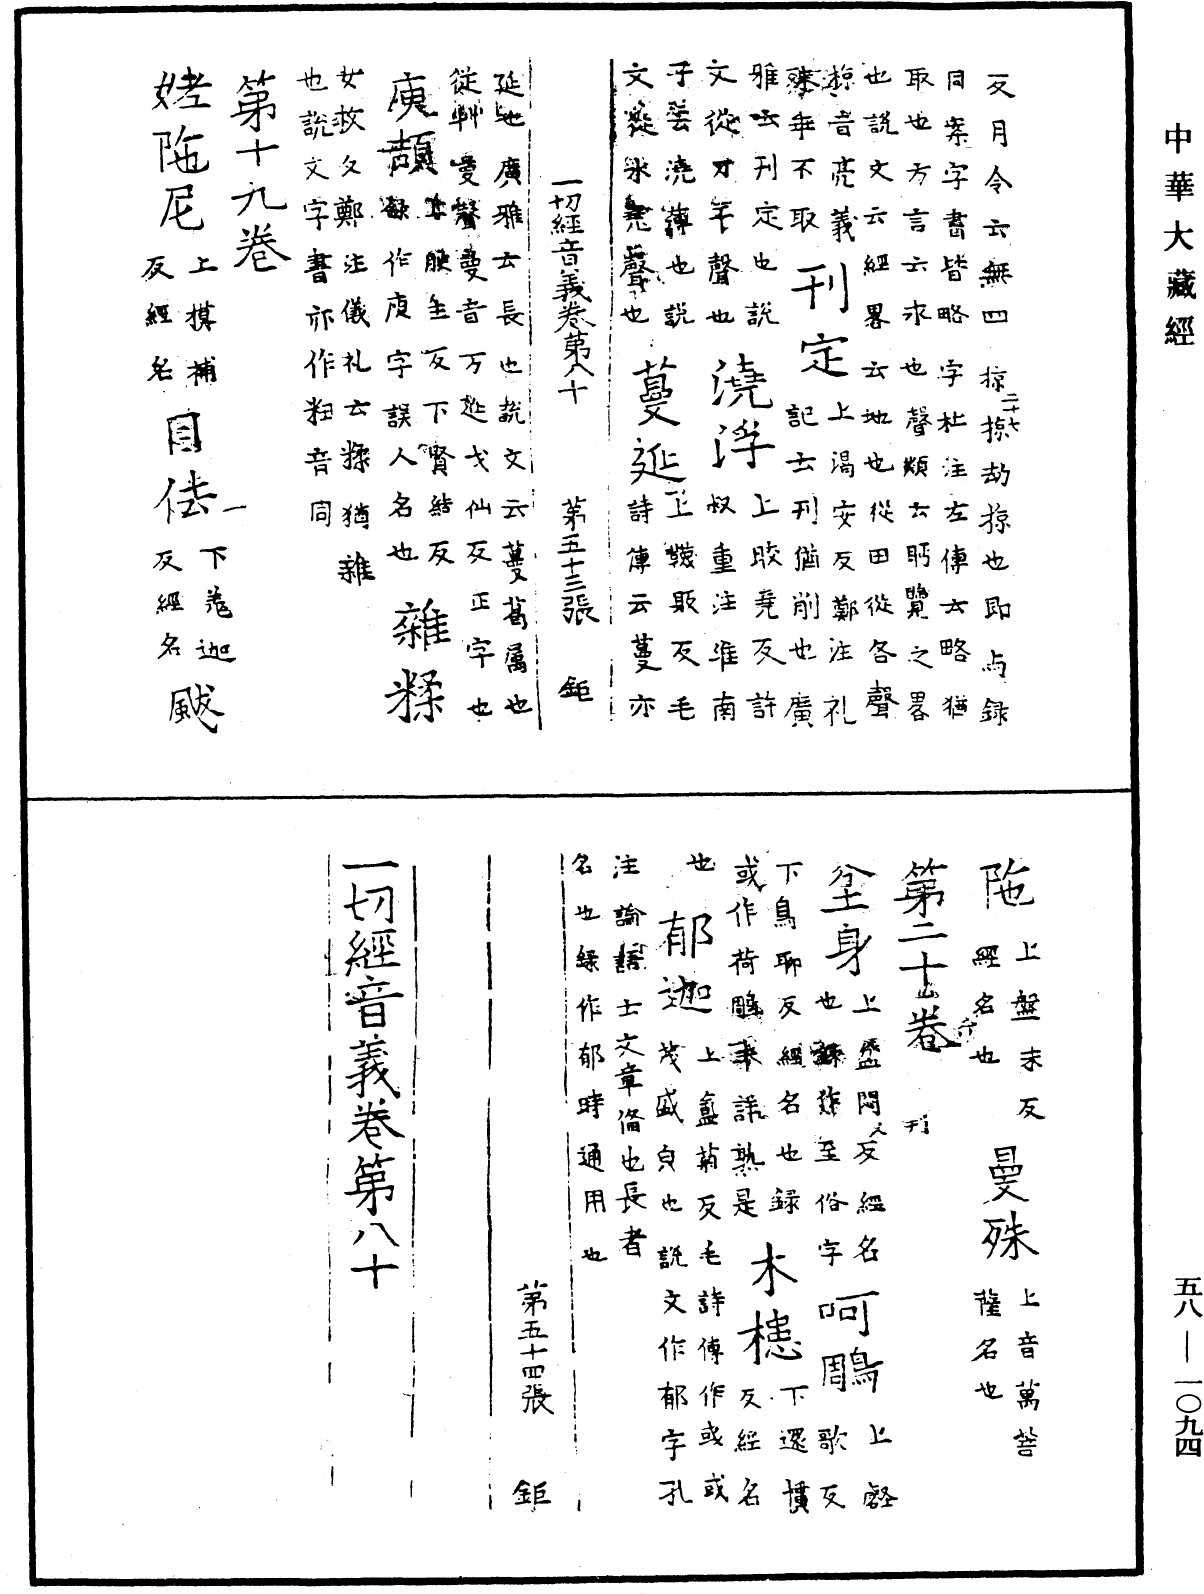 中華大藏經
反月令云無四 掠 二十七 掠劫掠也即与録
同案字書皆略字杜注左傳云略猶
取也方言云求也聲類云眄覽之畧
也說文云經畧云地也從田從各聲
掠音亮義 刊定 上渴安反鄭注礼
殊乖不取 記云刊猶削也廣
雅云刊定也說 澆浮 上晈堯反許
文從刀干聲也 叔重注淮南
子云澆薄也說 蔓延 上蠻販反毛
文從水堯聲也 詩傳云蔓亦
一切經音義卷第八十 第五十三張 鉅
延也廣雅云長也說文云蔓葛属也
從艸曼聲曼音万延弋仙反正字也
庾頡 上映主反下賢結反
録作庾字誤人名也 雜糅
女救反鄭注儀礼云糅猶雜
也說文字書亦作粈音同
第十九卷
姥陁尼 上摸補反經名 目佉 下羌迦反經名 颰
陁 上盤末反經名也 曼殊 上音萬菩薩名也
第二十卷
坌身 上盆悶反經名也 至俗字 呵鵰 上壑歌反
下鳥聊反經名也録
或作荷鵰未詳孰是 木槵 下還慣反經名
也 郁迦 上氳菊反毛詩傳作或或
茂盛皃也說文作郁字孔
注論語云文章備也長者
名也録作郁時通用也
第五十四張 鉅
一切經音義卷第八十
五八—一〇九四